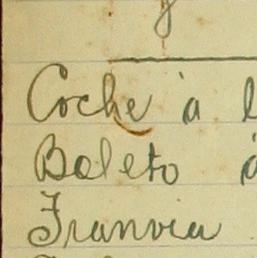 Coche à l
Boleto á
Tranvia